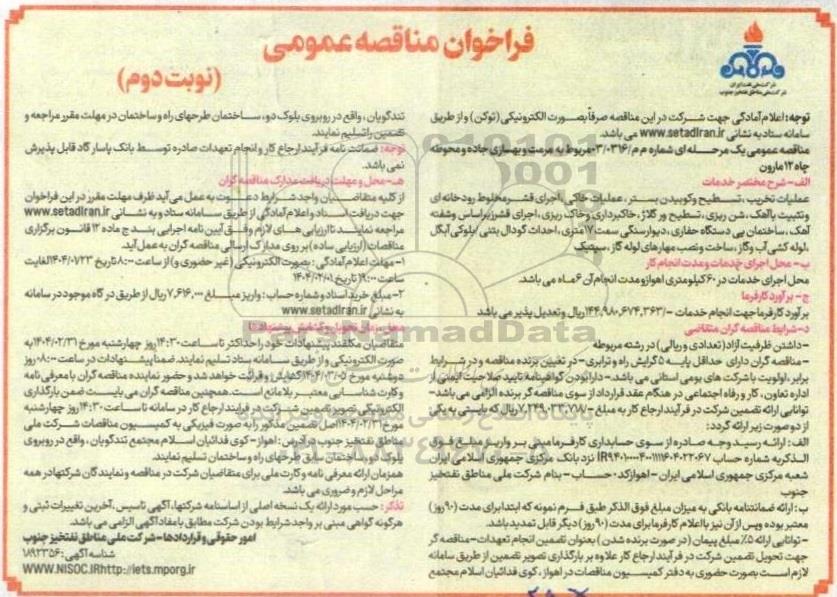 فراخوان مناقصه عمومی
(نوبت دوم)
شرکت ملی نفت ایران
شرکت ملی مناطق نفتخیز جنوب
توجه: اعلام آمادگی جهت شرکت در این مناقصه صرفاً بصورت الکترونیکی (توکن) و از طریق
سامانه ستاد به نشانی www.setadIran.ir می باشد.
مناقصه عمومی یک مرحله ای شماره م م/۰۳/۰۳۱۶ مربوط به مرمت و بهسازی جاده و محوطه
چاه ۱۲ مارون
الف- شرح مختصر خدمات
عملیات تخریب، تسطیح و کوبیدن بستر، عملیات خاکی، اجرای قشر مخلوط رودخانه ای
و تثبیت با آهک، شن ریزی، تسطیح ور گلاژ، خاکبرداری و خاک ریزی، اجرای قشر زیراساس و شفته
آهک، ساختمان پی دستگاه حفاری، دیوار سنگی سمت ۱۷ متری، احداث گودال بتنی / بلوکی آبگل
، لوله کشی آب و گاز، ساخت و نصب مهارهای لوله گاز، سپتیک
ب- محل اجرای خدمات و مدت انجام کار
محل اجرای خدمات در ۶۰ کیلومتری اهواز و مدت انجام آن ۶ ماه می باشد.
ج- برآورد کارفرما
برآورد کارفرما جهت انجام خدمات -/۱۴۴,۹۸۰,۶۷۴,۳۶۳ ریال و تعدیل پذیر می باشد
د- شرایط مناقصه گران متقاضی
- داشتن ظرفیت آزاد (تعدادی و ریالی) در رشته مربوطه
- مناقصه گران دارای حداقل پایه ۵ گرایش راه و ترابری - در تعیین برنده مناقصه و در شرایط
برابر، اولویت با شرکت های بومی استانی می باشد- دارا بودن گواهینامه تایید صلاحیت ایمنی از
اداره تعاون، کار و رفاه اجتماعی در هنگام عقد قرارداد از سوی مناقصه گر برنده الزامی می باشد-
توانایی ارائه تضمین شرکت در فرآیند ارجاع کار به مبلغ -/۷,۲۴۹,۰۳۳,۷۱۸ ریال که بایستی به یکی
از دو صورت زیر ارائه گردد:
الف: ارائه رسید وجه صادره از سوی حسابداری کارفرما مبنی بر واریز مبلغ فوق
الذکر به شماره حساب IR۹۴۰۱۰۰۰۰۴۰۰۱۱۱۴۰۶۰۲۲۰۶۷ نزد بانک مرکزی جمهوری اسلامی ایران
شعبه مرکزی جمهوری اسلامی ایران - اهواز کد ۰ حساب - بنام شرکت ملی مناطق نفتخیز
جنوب
ب: ارائه ضمانتنامه بانکی به میزان مبلغ فوق الذکر طبق فرم نمونه که ابتدا برای مدت (۹۰ روز)
معتبر بوده و پس از آن نیز با اعلام کارفرما برای مدت (۹۰ روز) دیگر قابل تمدید باشد.
- توانایی ارائه ۵٪ مبلغ پیمان (در صورت برنده شدن) بعنوان تضمین انجام تعهدات- مناقصه گر
جهت تحویل تضمین شرکت در فرآیند ارجاع کار علاوه بر بارگذاری تصویر تضمین از طریق سامانه
لازم است بصورت حضوری به دفتر کمیسیون مناقصات در اهواز، کوی فدائیان اسلام مجتمع
تندگویان، واقع در روبروی بلوک دو، ساختمان طرحهای راه و ساختمان در مهلت مقرر مراجعه و
تضمین را تسلیم نمایند.
توجه: ضمانت نامه فرآیند ارجاع کار و انجام تعهدات صادره توسط بانک پاسارگاد قابل پذیرش
نمی باشد.
هـ- محل و مهلت دریافت مدارک مناقصه گران
از کلیه متقاضیان واجد شرایط دعوت به عمل می آید ظرف مهلت مقرر در این فراخوان
جهت دریافت اسناد و اعلام آمادگی از طریق سامانه ستاد و به نشانی www.setadIran.ir
مراجعه نمایند تا ارزیابی های لازم وفق آیین نامه اجرایی بند ج ماده ۱۲ قانون برگزاری
مناقصات (ارزیابی ساده) بر روی مدارک ارسالی مناقصه گران به عمل آید.
۱- مهلت اعلام آمادگی: بصورت الکترونیکی (غیر حضوری و) از ساعت ۰۸:۰۰ تاریخ ۱۴۰۴/۰۱/۲۳ لغایت
ساعت ۱۹:۰۰ تاریخ ۱۴۰۴/۰۲/۰۱
۲- مبلغ خرید اسناد و شماره حساب: واریز مبلغ ۷,۶۱۶,۰۰۰ ریال از طریق درگاه موجود در سامانه
به نشانی www.setadIran.ir
و- محل، زمان تحویل و گشایش پیشنهادها
متقاضیان مکلفند پیشنهادات خود را حداکثر تا ساعت ۱۴:۳۰ روز چهارشنبه مورخ ۱۴۰۴/۰۲/۳۱ به
صورت الکترونیکی و از طریق سامانه ستاد تسلیم نمایند. ضمنا پیشنهادات در ساعت ۰۸:۰۰ روز
دوشنبه مورخ ۱۴۰۴/۰۳/۰۵ گشایش و قرائت خواهد شد و حضور نماینده مناقصه گران با معرفی نامه
و کارت شناسایی معتبر بلامانع است. همچنین مناقصه گران می بایست ضمن بارگذاری
الکترونیکی تصویر تضمین شرکت در فرایند ارجاع کار در سامانه تا ساعت ۱۴:۳۰ روز چهارشنبه
مورخ ۱۴۰۴/۰۲/۳۱ اصل تضمین مذکور را به صورت فیزیکی به کمیسیون مناقصات شرکت ملی
مناطق نفتخیز جنوب در آدرس: اهواز- کوی فدائیان اسلام مجتمع تندگویان، واقع در روبروی
بلوک دو، ساختمان سابق طرحهای راه و ساختمان تسلیم نمایند.
همزمان ارائه معرفی نامه و کارت ملی برای متقاضیان شرکت در مناقصه و نمایندگان شرکتها در همه
مراحل لازم و ضروری می باشد.
تذکر: حسب مورد ارائه یک نسخه اصلی از اساسنامه شرکتها، آگهی تاسیس، آخرین تغییرات ثبتی و
هرگونه گواهی مبنی بر واجد شرایط بودن شرکت مطابق با مفاد آگهی الزامی می باشد.
امور حقوقی و قراردادها- شرکت ملی مناطق نفتخیز جنوب
شناسه آگهی: ۱۸۹۲۳۵۶
WWW.NISOC.IR http://iets.mporg.ir